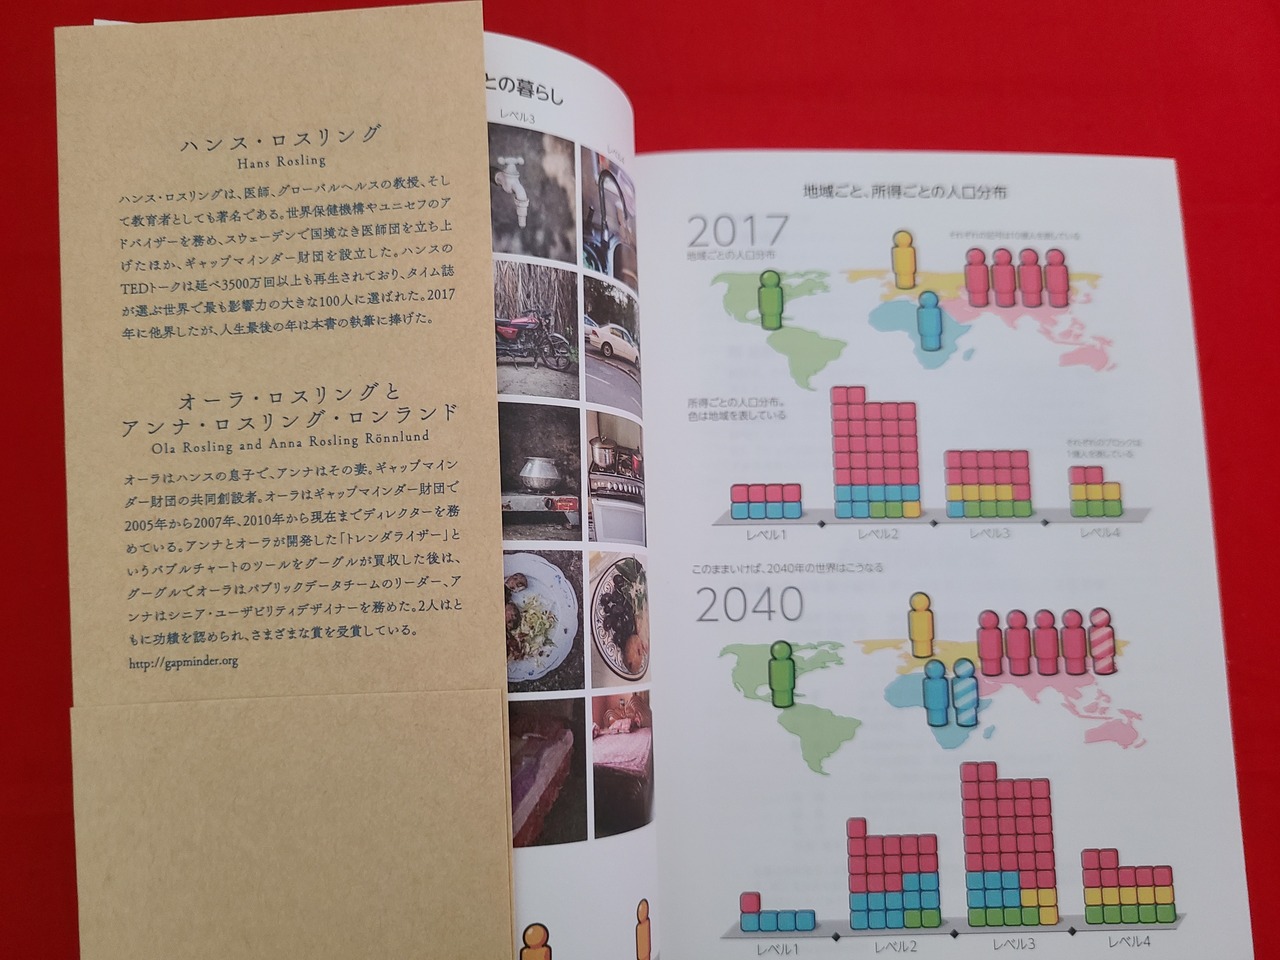 ハンス・ロスリング
Hans Rosling
ハンス・ロスリングは、医師、グローバルヘルスの教授、そし
て教育者としても著名である。世界保健機構やユニセフのア
ドバイザーを務め、スウェーデンで国境なき医師団を立ち上
げたほか、ギャップマインダー財団を設立した。ハンスの
TEDトークは延べ3500万回以上も再生されており、タイム誌
が選ぶ世界で最も影響力の大きな100人に選ばれた。2017
年に他界したが、人生最後の年は本書の執筆に捧げた。
オーラ・ロスリングと
アンナ・ロスリング・ロンランド
Ola Rosling and Anna Rosling Rönnlund
オーラはハンスの息子で、アンナはその妻。ギャップマイン
ダー財団の共同創設者。オーラはギャップマインダー財団で
2005年から2007年、2010年から現在までディレクターを務
めている。アンナとオーラが開発した「トレンダライザー」と
いうバブルチャートのツールをグーグルが買収した後は、
グーグルでオーラはパブリックデータチームのリーダー、ア
ンナはシニア・ユーザビリティデザイナーを務めた。2人はと
もに功績を認められ、さまざまな賞を受賞している。
http://gapminder.org
との暮らし
レベル3
レベル4
地域ごと、所得ごとの人口分布
2017
地域ごとの人口分布
それぞれの記号は10億人を表している
所得ごとの人口分布。
色は地域を表している
それぞれのブロックは
1億人を表している
レベル1
レベル2
レベル3
レベル4
このままいけば、2040年の世界はこうなる
2040
レベル1
レベル2
レベル3
レベル4